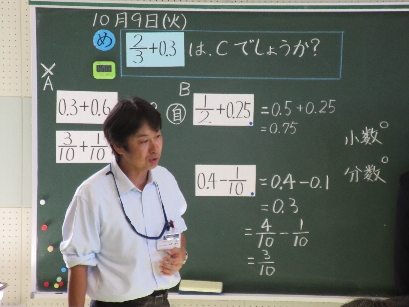 10月9日(火)
め 2/3+0.3 は、Cでしょうか?
×
A
B
0.3+0.6
3/10+1/10
自
1/2+0.25 =0.5+0.25
=0.75
小数○
分数○
0.4-1/10 =0.4-0.1
=0.3
=4/10-1/10
=3/10